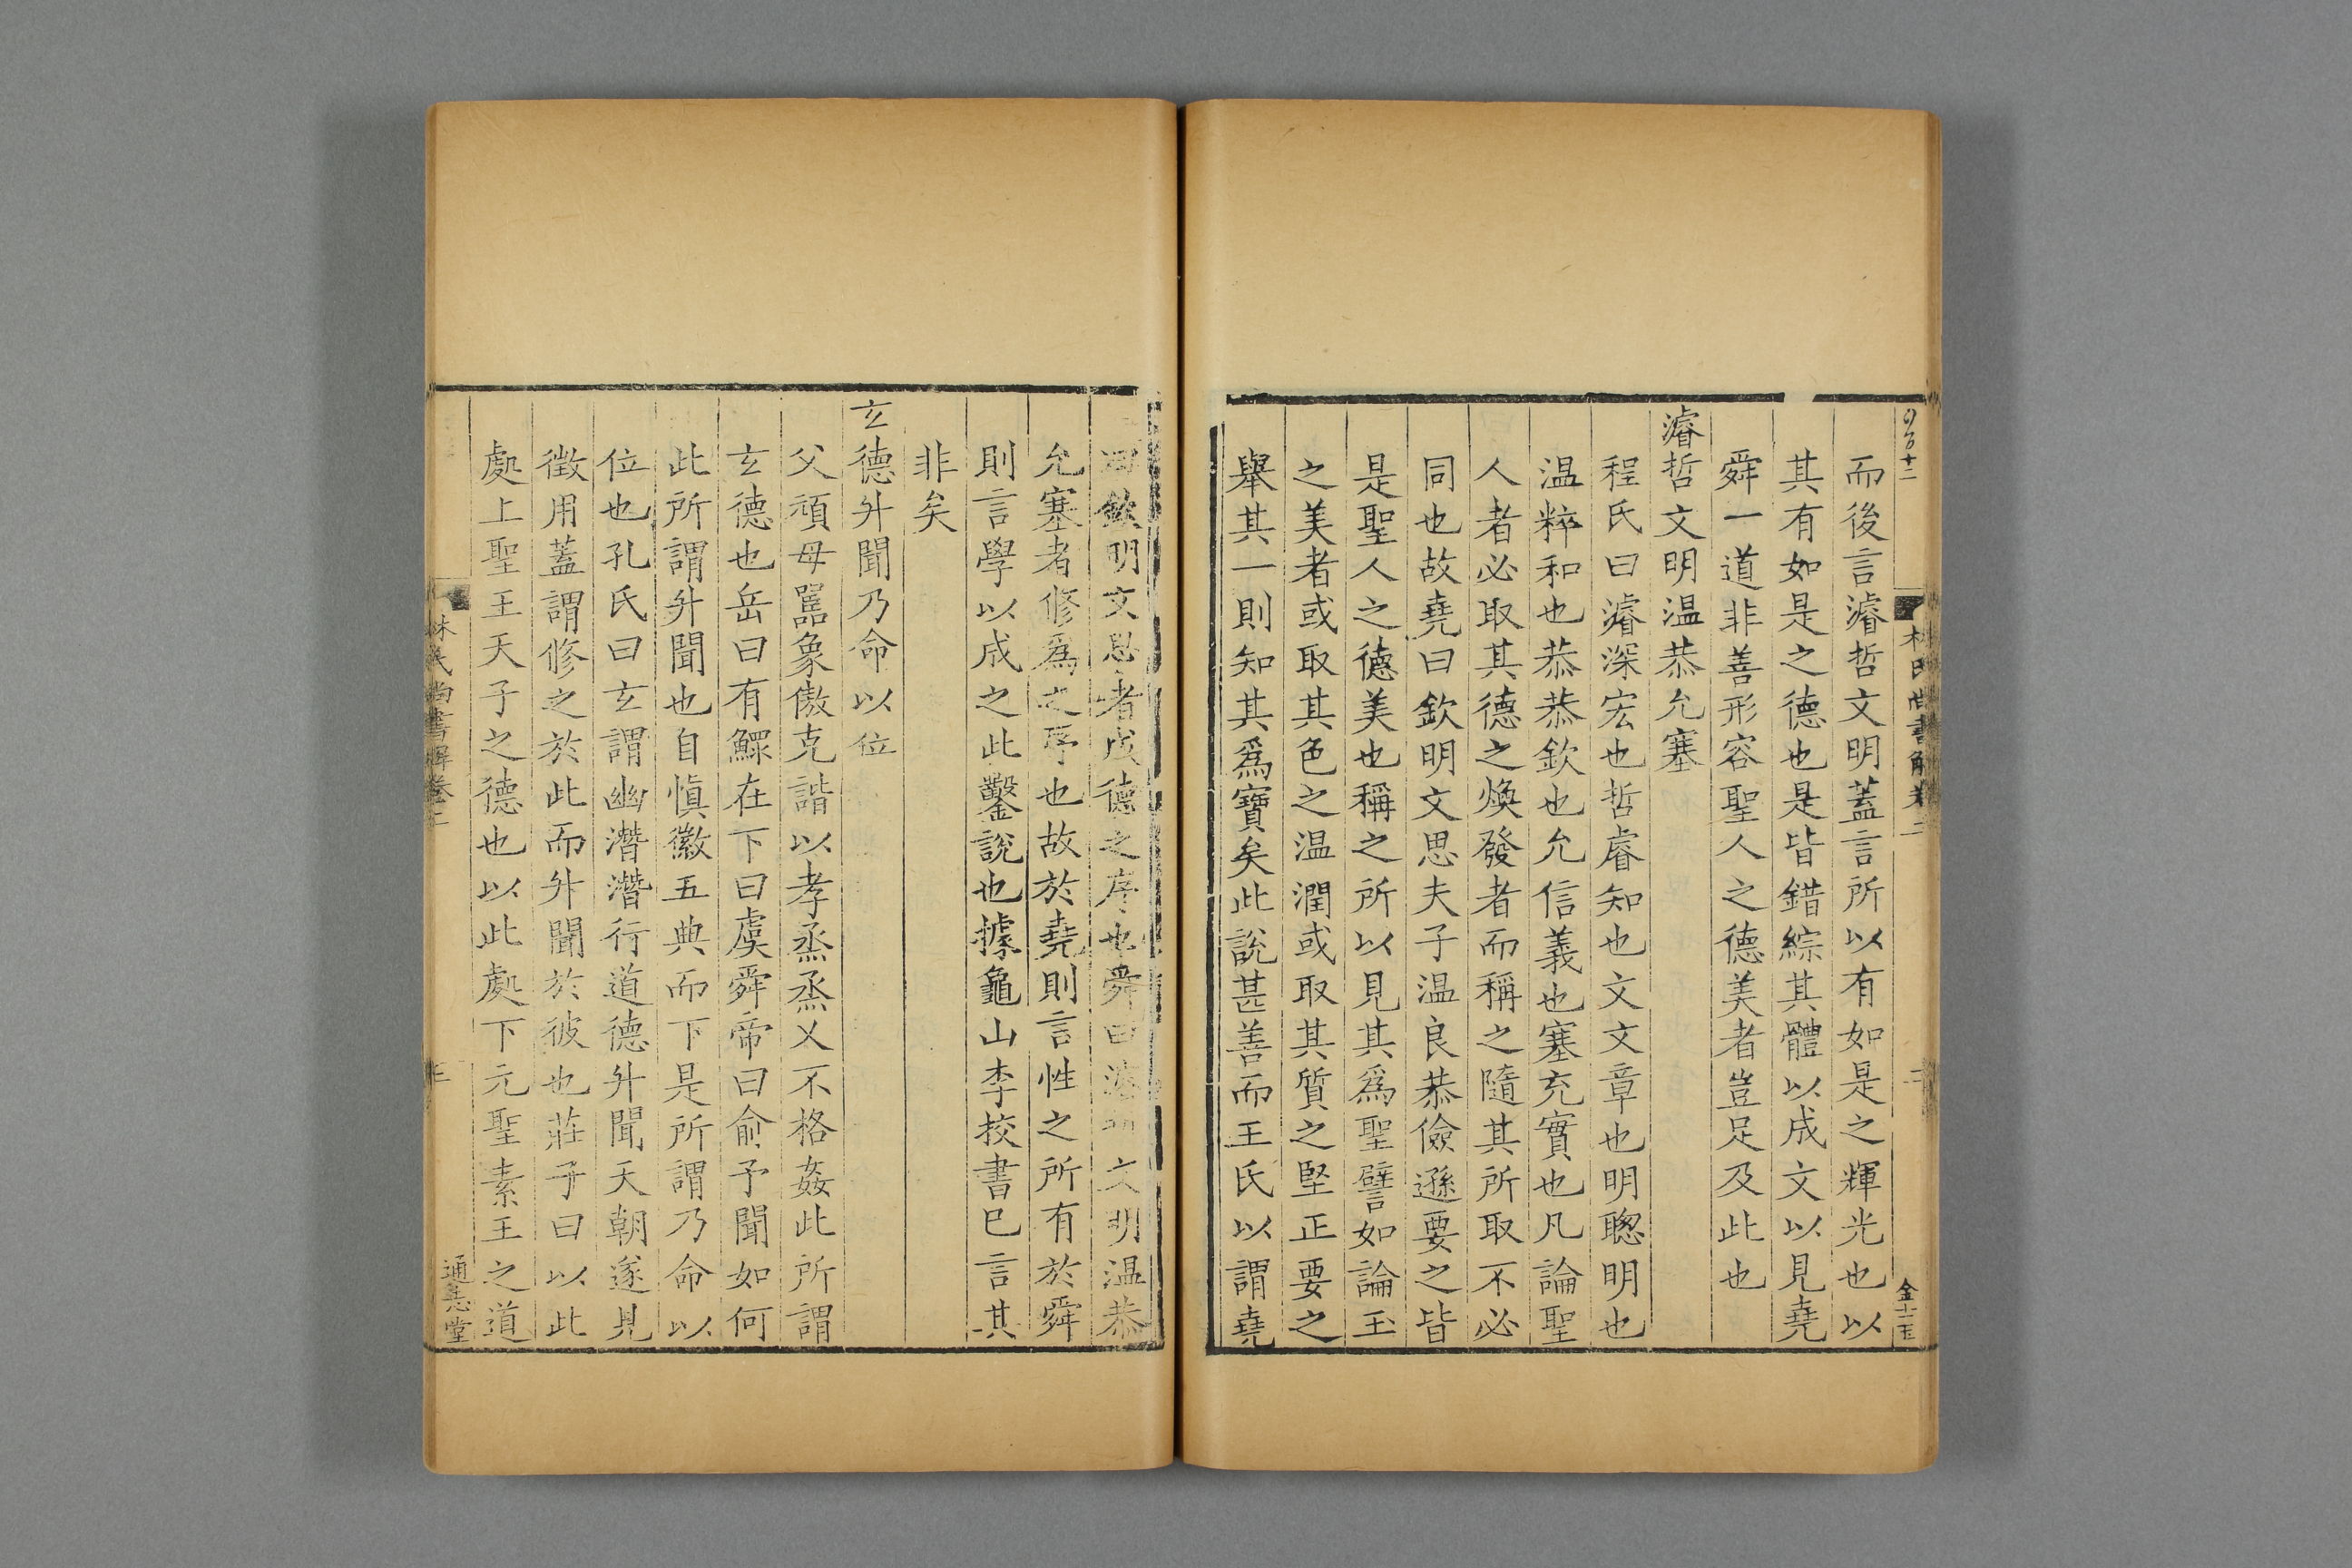 而後言濬哲文明蓋言所以有如是之輝光也以
其有如是之德也是皆錯綜其體以成文以見堯
舜一道非善形容聖人之德美者豈足及此也
濬哲文明温恭允塞
程氏曰濬深宏也哲睿知也文文章也明聦明也
温粹和也恭恭欽也允信義也塞充實也凡論聖
人者必取其德之煥發者而稱之隨其所取不必
同也故堯曰欽明文思夫子温良恭儉遜要之皆
是聖人之德美也稱之所以見其爲聖譬如論玉
之美者或取其色之温潤或取其質之堅正要之
舉其一則知其爲寶矣此說甚善而王氏以謂堯
曰欽明文思者成德之序也舜曰濬哲文明温恭
允塞者修爲之序也故於堯則言性之所有於舜
則言學以成之此鑿說也據龜山李校書已言其
非矣
玄德升聞乃命以位
父頑母嚚象傲克諧以孝烝烝乂不格姦此所謂
玄德也岳曰有鰥在下曰虞舜帝曰俞予聞如何
此所謂升聞也自慎徽五典而下是所謂乃命以
位也孔氏曰玄謂幽潛潛行道德升聞天朝遂見
徵用蓋謂修之於此而升聞於彼也莊子曰以此
處上聖王天子之德也以此處下元聖素王之道
林氏尚書解卷二
三
通志堂